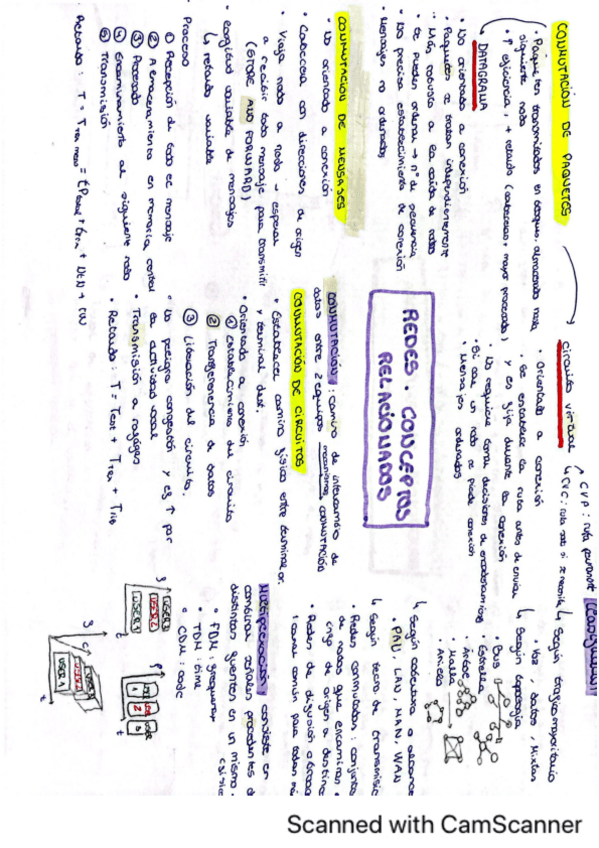 REDES. CONCEPTOS
RELACIONADOS
CONMUTACIÓN: camino de intercambio de
datos entre 2 equipos
mecanismos CONMUTACIÓN
CONMUTACIÓN DE CIRCUITOS
• Establecer camino físico entre terminal or.
y terminal dest.
• Orientado a conexión.
① Establecimiento del circuito
② Transferencia de datos
③ Liberación del circuito.
• No peligra congestión y es ↑ por
la actividad vocal
• Transmisión a ráfagas
• Retardo: T = Test + Ttra + Tlib
CONMUTACIÓN DE PAQUETES
• Paquetes transmitidos en bloques, almacenado hasta
siguiente nodo
• ↑ eficiencia, + retardo (cabeceras, mayor procesado)
↳ DATAGRAMA
• No orientado a conexión
• Paquetes se tratan independientemente
• Más robusto a la caída de nodos
• Se pueden ordenar → nº de secuencia
• No precisa establecimiento de conexión
• Mensajes no ordenados
CONMUTACIÓN DE MENSAJES
• No orientado a conexión
• Cabecera con direcciones de origen
• Viaja nodo a nodo → esperar
a recibir todo mensaje para transmitir
(STORE AND FORWARD)
• Longitud variable de mensajes
↳ retardo variable
Proceso
① Recepción de todo el mensaje
② Almacenamiento en memoria central
③ Procesado
④ Encaminamiento al siguiente nodo
⑤ Transmisión
• Retardo: T = Ttra
circuito virtual
CVP: ruta permanente
↳ CVC: ruta solo si se necesita
• Orientado a conexión
• Se establece la ruta antes de enviar
y es fija durante la conexión
• No requiere tomar decisiones de encaminamiento
• Si cae un nodo se pierde conexión
• Mensajes ordenados
↳ Según tráfico mayoritario
• Voz, datos, Mixtas
↳ Según topología
• Bus
• Estrella
• Árbol
• Malla
• Anillo
↳ Según cobertura o alcance
• PAN, LAN, MAN, WAN
↳ Según tecno. de transmisión
• Redes conmutadas: conjunto
de nodos que encaminan
info de origen a destino
• Redes de difusión o broad
1 canal común para todos
Multiplexación: consiste en
combinar señales procedentes de
distintas fuentes en un mismo
• FDM: frequency
• TDM: time
• CDM: code
USER 3
USER 2
USER 1
t
t
USER 1
t
Scanned with CamScanner